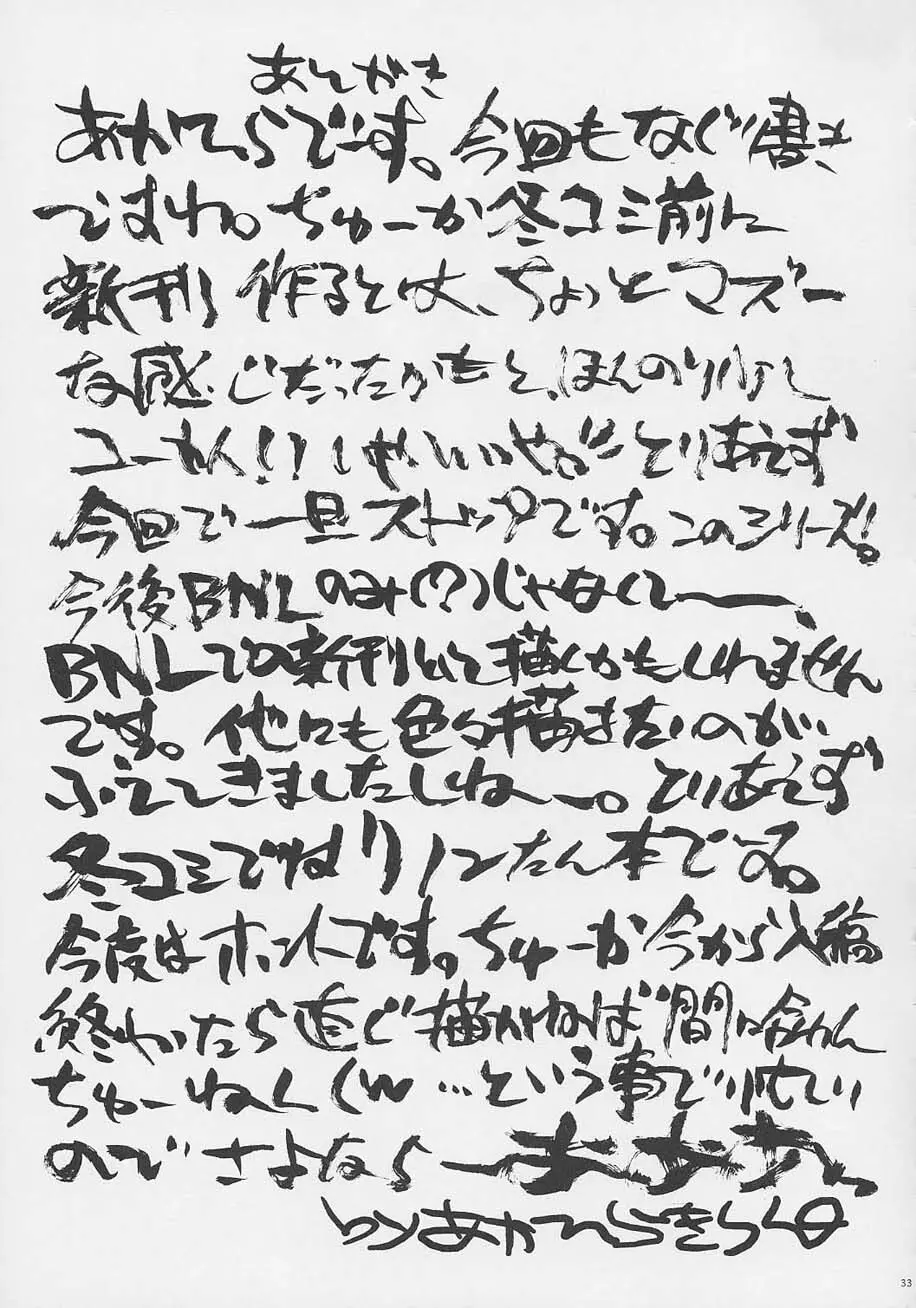 あとがき
あかてらです。今回もなぐり書き
ですね。ちゅーか冬コミ前に
新刊作るとは、ちょっとマズー
な感じだったかもと、ほんのり
とりあえず
今回で一旦ストップです。このシリーズ!。
今後BNLのみ(?)じゃなくてー、
BNLでの新刊として描くかもしれません
です。他にも色々描きたいのが
ふえてきましたしねー。とりあえず
冬コミではリノンたん本でする。
今度はホントです。ちゅーか今から入稿
終わったら直ぐ描かねば間に合わん
ちゅーねん(w …という事で忙しい
のでさよならー
33